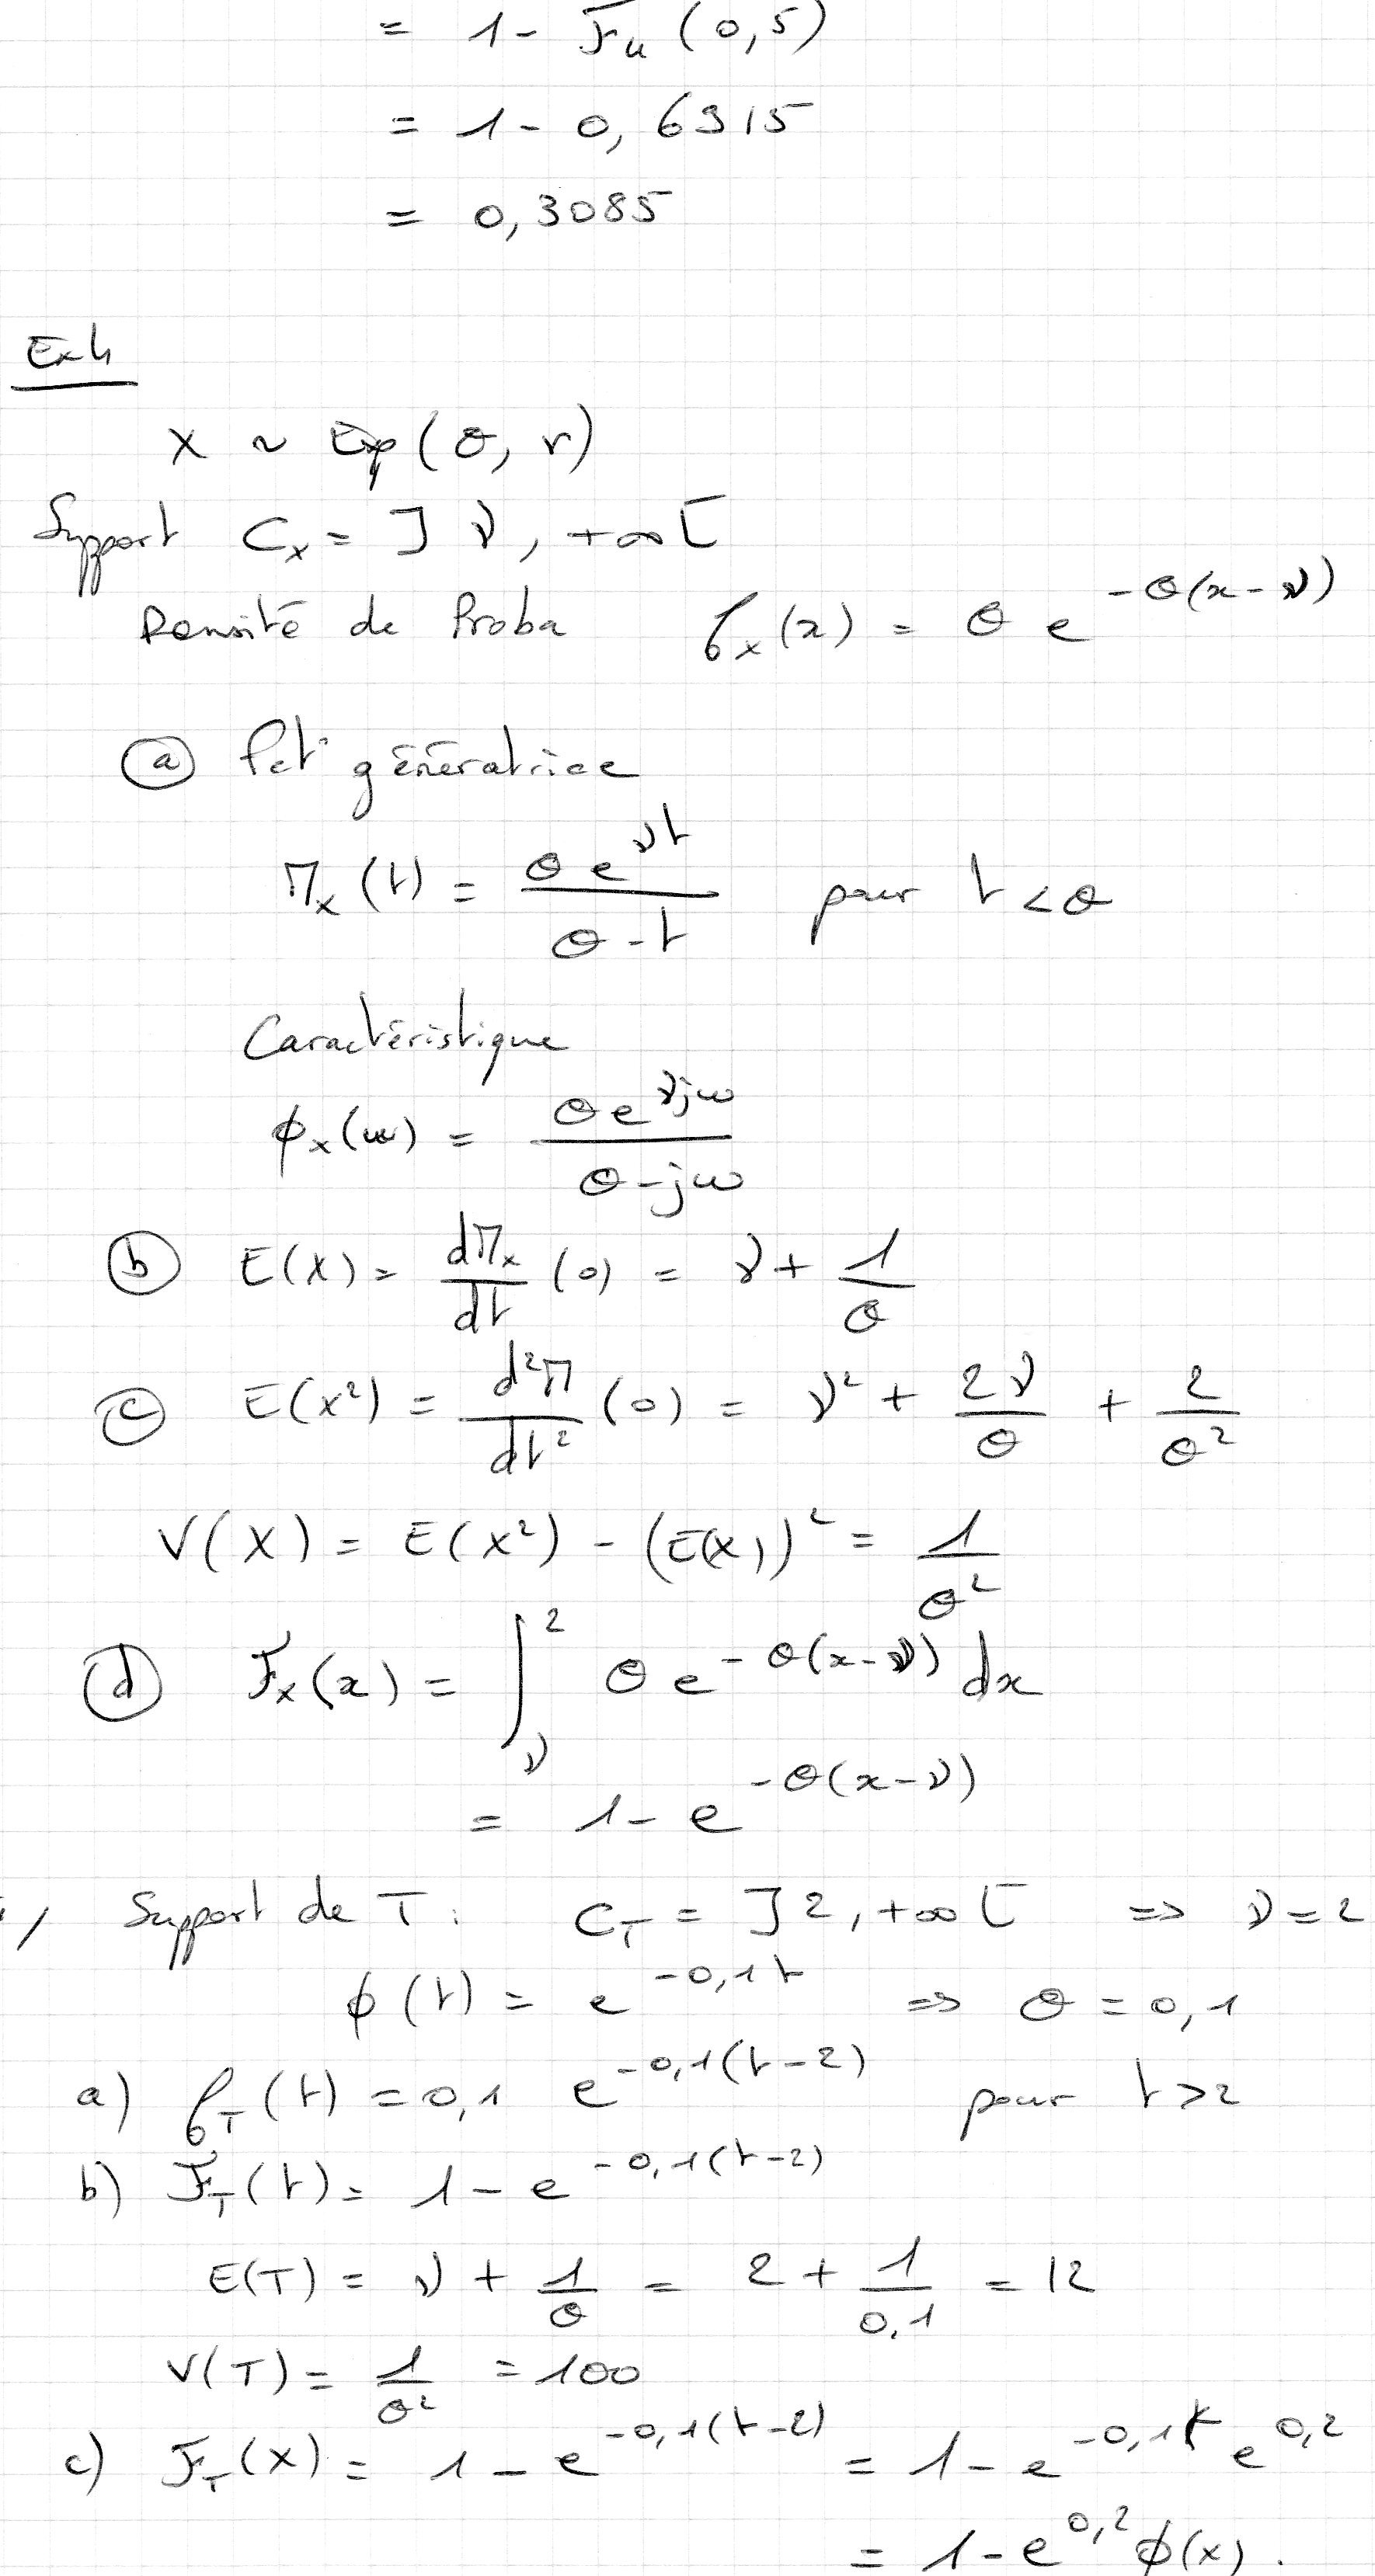 = 1 - F_u (0,5)
= 1 - 0,6915
= 0,3085
Ex 4
X ~ Exp(θ, ν)
Support C_x = ]ν, +∞[
Densité de Proba f_x(x) = θ e^{-θ(x-ν)}
(a) Fct° génératrice
M_x(t) = \frac{θ e^{νt}}{θ - t} pour t < θ
Caractéristique
ϕ_x(ω) = \frac{θ e^{νjω}}{θ - jω}
(b) E(X) = \frac{dM_x}{dt}(0) = ν + \frac{1}{θ}
(c) E(X²) = \frac{d²M}{dt²}(0) = ν² + \frac{2ν}{θ} + \frac{2}{θ²}
V(X) = E(X²) - (E(X))² = \frac{1}{θ²}
(d) F_x(x) = ∫_ν^2 θ e^{-θ(x-ν)} dx
= 1 - e^{-θ(x-ν)}
Support de T : C_T = ]2, +∞[ => ν = 2
ϕ(t) = e^{-0,1t} => θ = 0,1
a) f_T(t) = 0,1 e^{-0,1(t-2)} pour t > 2
b) F_T(t) = 1 - e^{-0,1(t-2)}
E(T) = ν + \frac{1}{θ} = 2 + \frac{1}{0,1} = 12
V(T) = \frac{1}{θ²} = 100
c) F_T(x) = 1 - e^{-0,1(t-2)} = 1 - e^{-0,1t} e^{0,2}
= 1 - e^{0,2} ϕ(x).